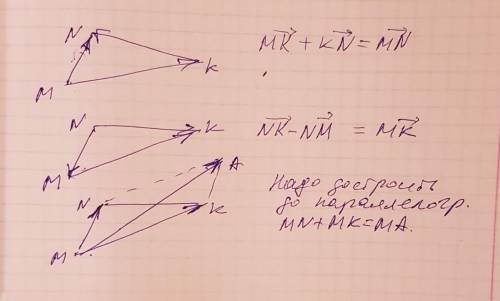 N
K
M
MK + KN = MN
N
K
M
NK - NM = MK
A
N
K
M
Надо достроить
до параллелогр.
MN+MK=MA.